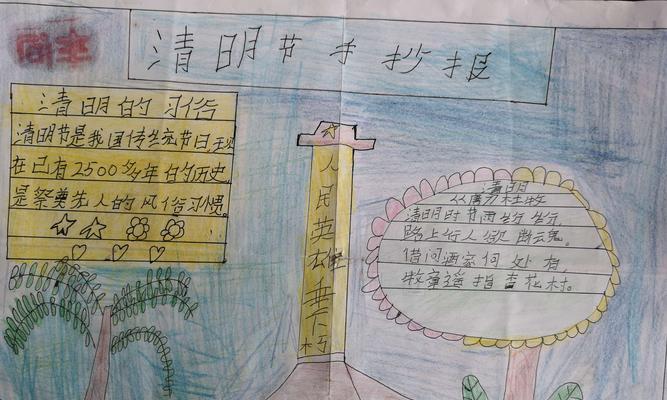 清明节手抄报
清明的习俗
清明节是我国传统节日现
在已有2500多年的历史,
是祭奠先人的风俗习惯。
人民英雄垂不朽
清明
杜牧
清明时节雨纷纷
路上行人欲断魂。
借问酒家何处有
牧童遥指杏花村。